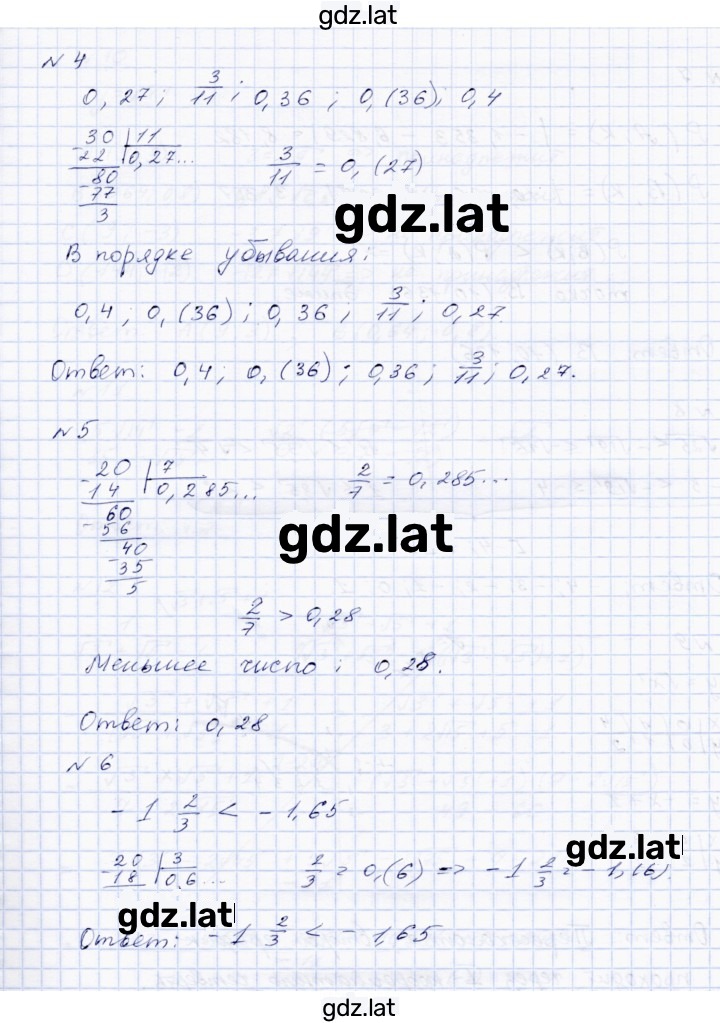 gdz.lat
№ 4
0,27; 3/11; 0,36; 0,(36); 0,4
-30 | 11
22 | 0,27...
-80
77
3
3/11 = 0,(27)
gdz.lat
В порядке убывания:
0,4; 0,(36); 0,36; 3/11; 0,27.
Ответ: 0,4; 0,(36); 0,36; 3/11; 0,27.
№ 5
-20 | 7
14 | 0,285...
-60
56
-40
35
5
2/7 = 0,285...
gdz.lat
2/7 > 0,28
Меньшее число: 0,28.
Ответ: 0,28
№ 6
-1 2/3 < -1,65
gdz.lat
-20 | 3
18 | 0,6...
2/3 = 0,(6) => -1 2/3 = -1,(6).
gdz.lat
Ответ: -1 2/3 < -1,65
gdz.lat